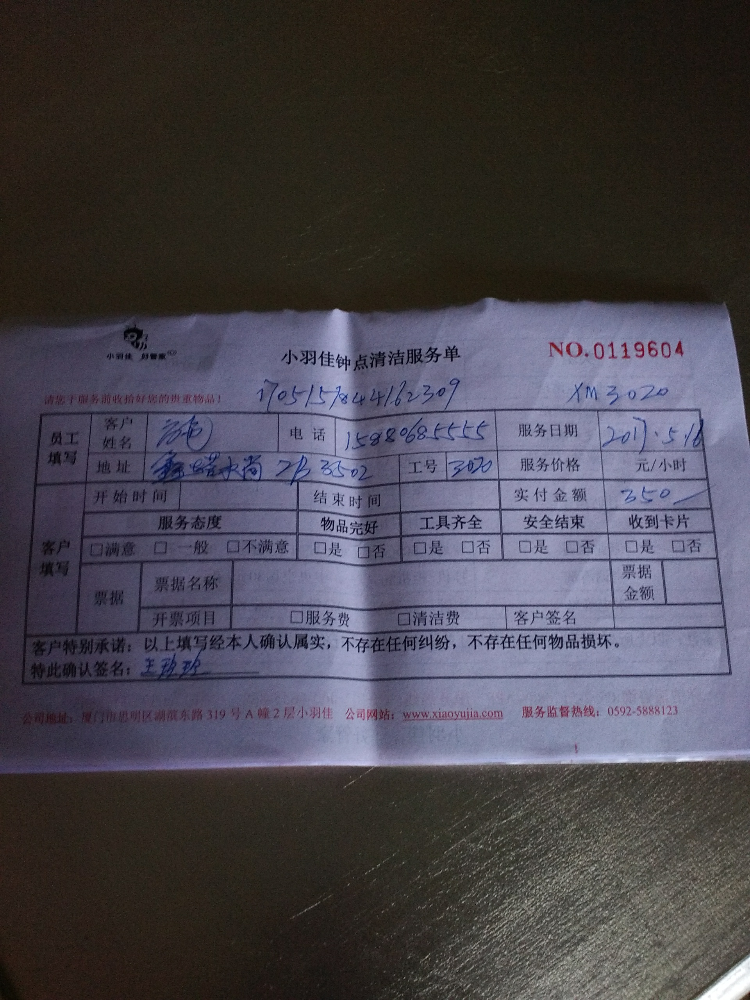 小羽佳 好管家
小羽佳钟点清洁服务单 NO.0119604
请您于服务前收拾好您的贵重物品! XM3020
员工填写 客户姓名 电话 15880685555 服务日期 2017.5.16
地址 2B 3502 工号 3020 服务价格 元/小时
客户填写 开始时间 结束时间 实付金额 350
服务态度 物品完好 工具齐全 安全结束 收到卡片
□满意 □一般 □不满意 □是 □否 □是 □否 □是 □否 □是 □否
票据 票据名称 票据金额
开票项目 □服务费 □清洁费 客户签名
客户特别承诺:以上填写经本人确认属实,不存在任何纠纷,不存在任何物品损坏。
特此确认签名:
公司地址:厦门市思明区湖滨东路 319 号 A 幢 2 层小羽佳 公司网站:www.xiaoyujia.com 服务监督热线:0592-5888123